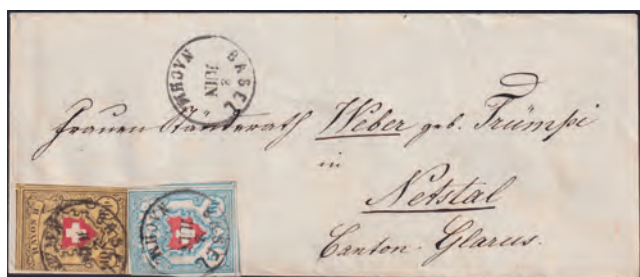 BASEL
8
JUN
NACHM
Frauen Ständerath Weber geb. Trümpi
in
Netstal
Canton Glarus.